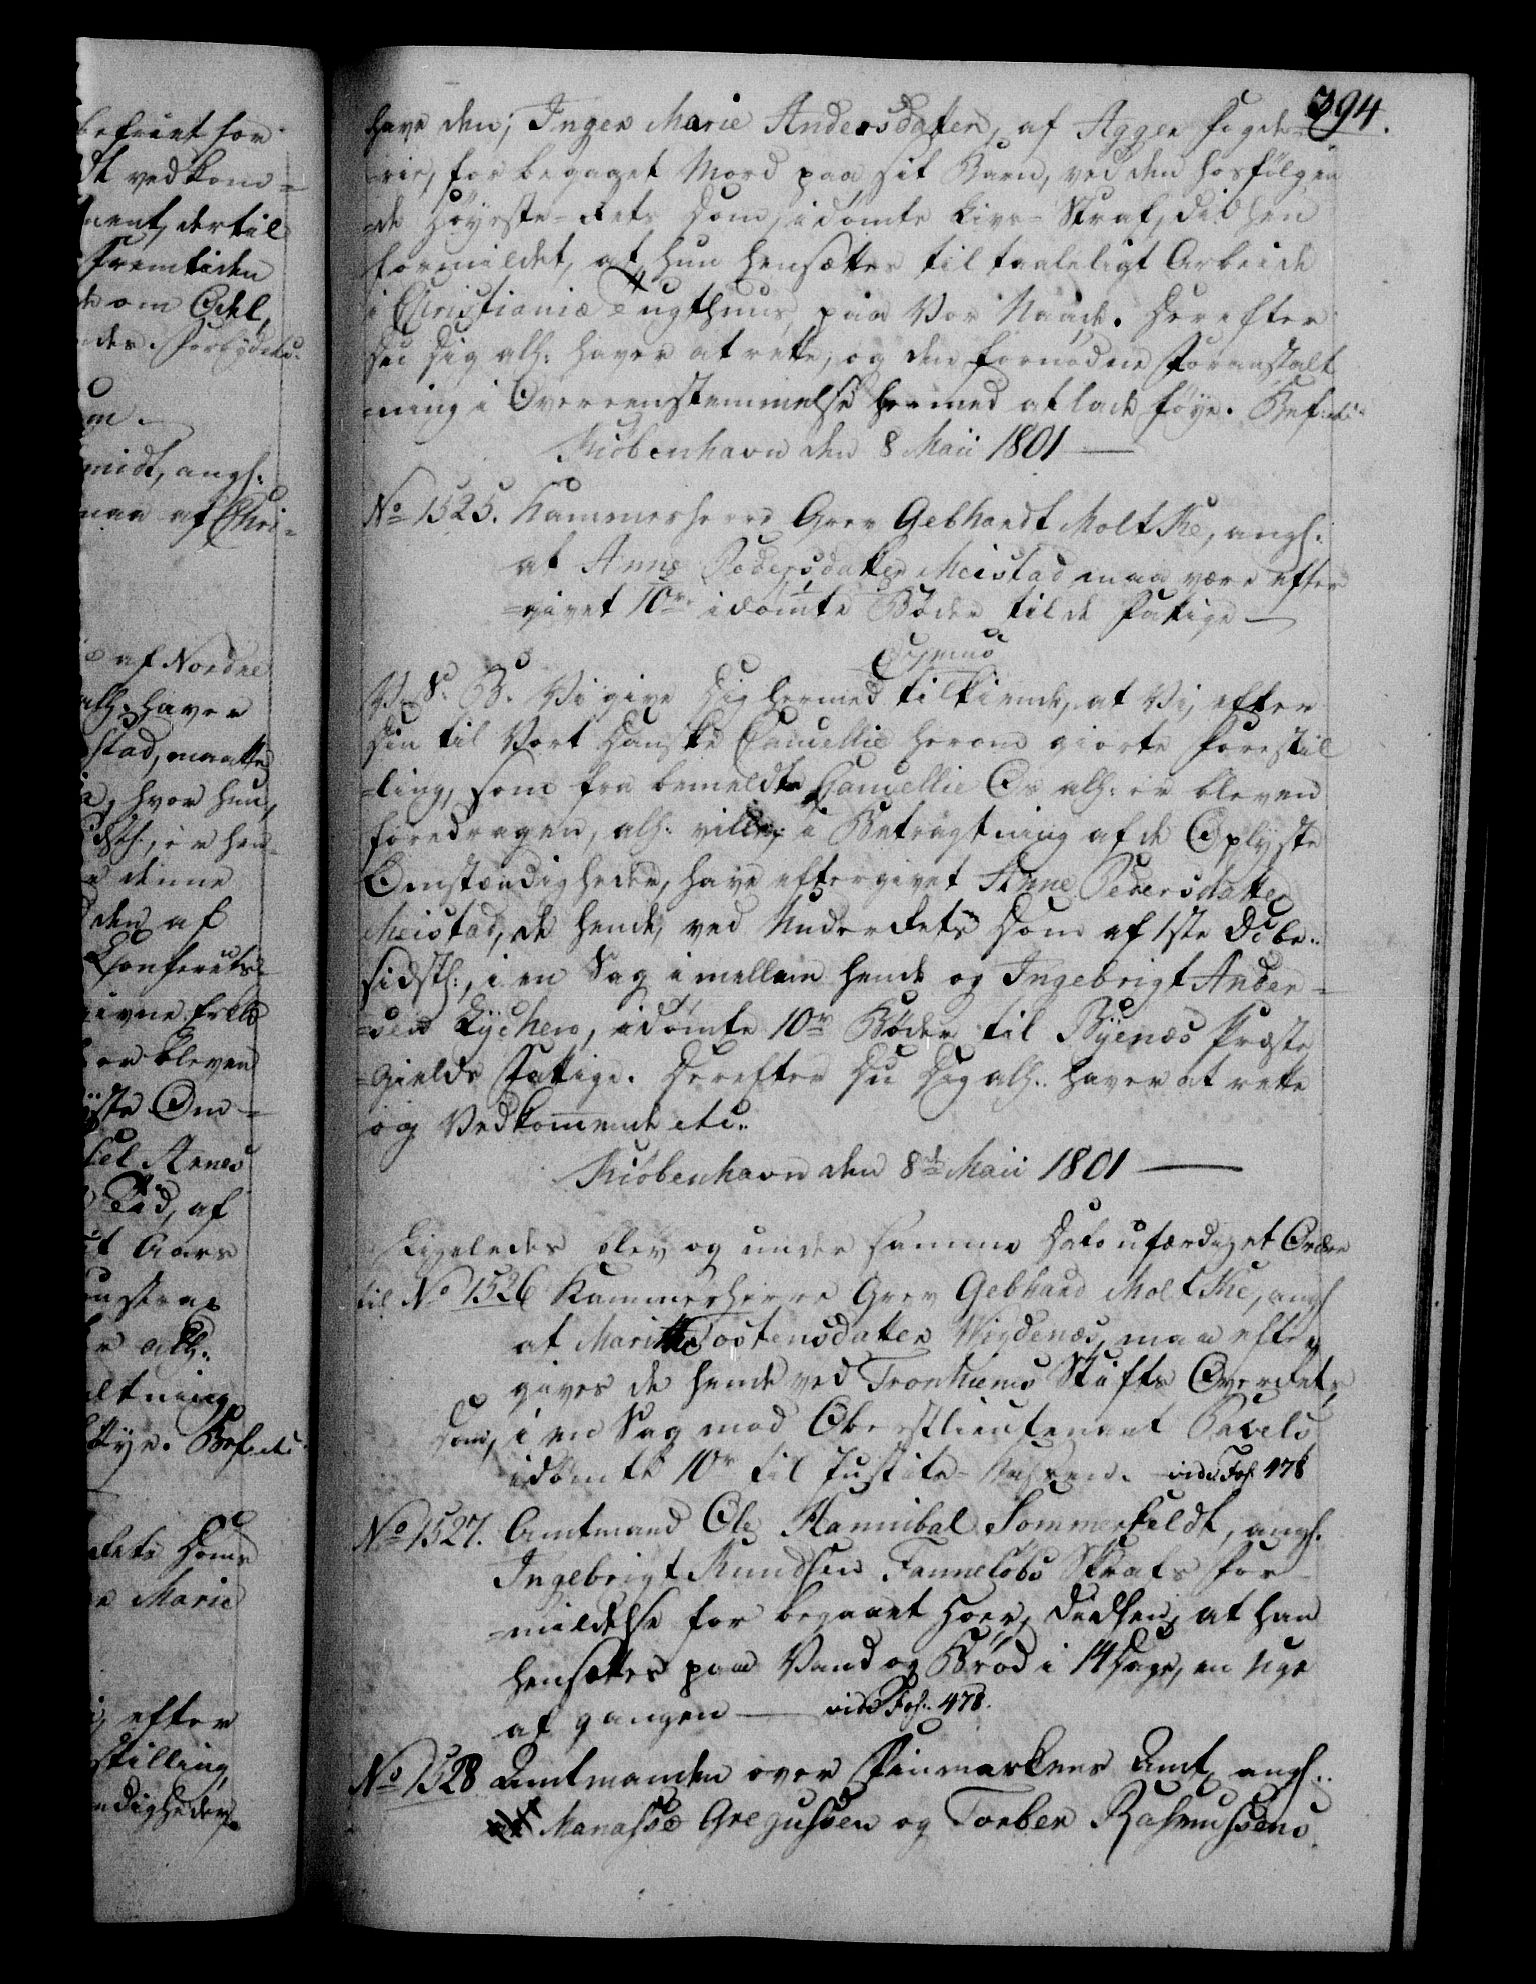 394.
have den, Inger Marie Andersdatter, af Agger Fogde-
-rie, for begaaet Mord paa sit Barn, ved den hosfölgen
-de Höyeste-Rets Dom, idömte Livs-Straf, did hen
formildet, at hun hensættes til taaleligt Arbeide
i Christianiæ Tugthuus paa Vor Naade. Derefter
Du Dig alh: haver at rette, og den fornødne Foranstalt
-ning i Overeenstemmelse hermed at lade föye. Bef: etc:
Kiöbenhavn den 8 Maii 1801 —
No 1525. Kammerherre Grev Gebhardt Moltke, angl.
at Anne Pedersdatter Meistad maa være efter
-givet 10rd idömte Böder til de Fattige —
V. S. B. Vi give Dig hermed tilkiende, at Vi, efter
Din til Vort Danske Cancellie herom giorte Forestil
-ling, som fra bemeldte Cancellie Os alh: er bleven
foredragen, alh: ville, i Betragtning af de Oplyste
Omstændigheder, have eftergivet Anne Pedersdatter
Meistad, de hende, ved Underrets Dom af 1ste Dcbr.
sidstl:, i en Sag imellem hende og Ingebrigt Ander-
-sen Lychens, idömte 10rd Böder til Byenæs Præste
-gields Fattige. Derefter Du Dig alh: haver at rette
og Vedkommende etc:
Kiöbenhavn den 8de Maii 1801 —
Ligeledes blev og under samme Dato ufærdiget Ordre
til No 1526 Kammerherre Grev Gebhard Moltke, angl
at Maritte Tostensdatter Wigdenæs, maa efter
gives de hende ved Tronhiems Stifts Overrets
Dom, i en Sag mod Oberstlieutenant Bavels
idömte 10rd til Justits-Kassen. vide Fol: 478
No 1527. Amtmand Ole Hannibal Sommerfeldt, angl.
Ingebrigt Knudsen Fannelöbs Strafs For-
-mildelse for begaaet Hoer, didhen, at han
hensættes paa Vand og Bröd i 14 Dage, en Uge
af gangen — vide Fol: 478.
No 1528 Amtmanden over Finmarkens Amt, angl..
Manasse Gregussen og Torber Rasmussens